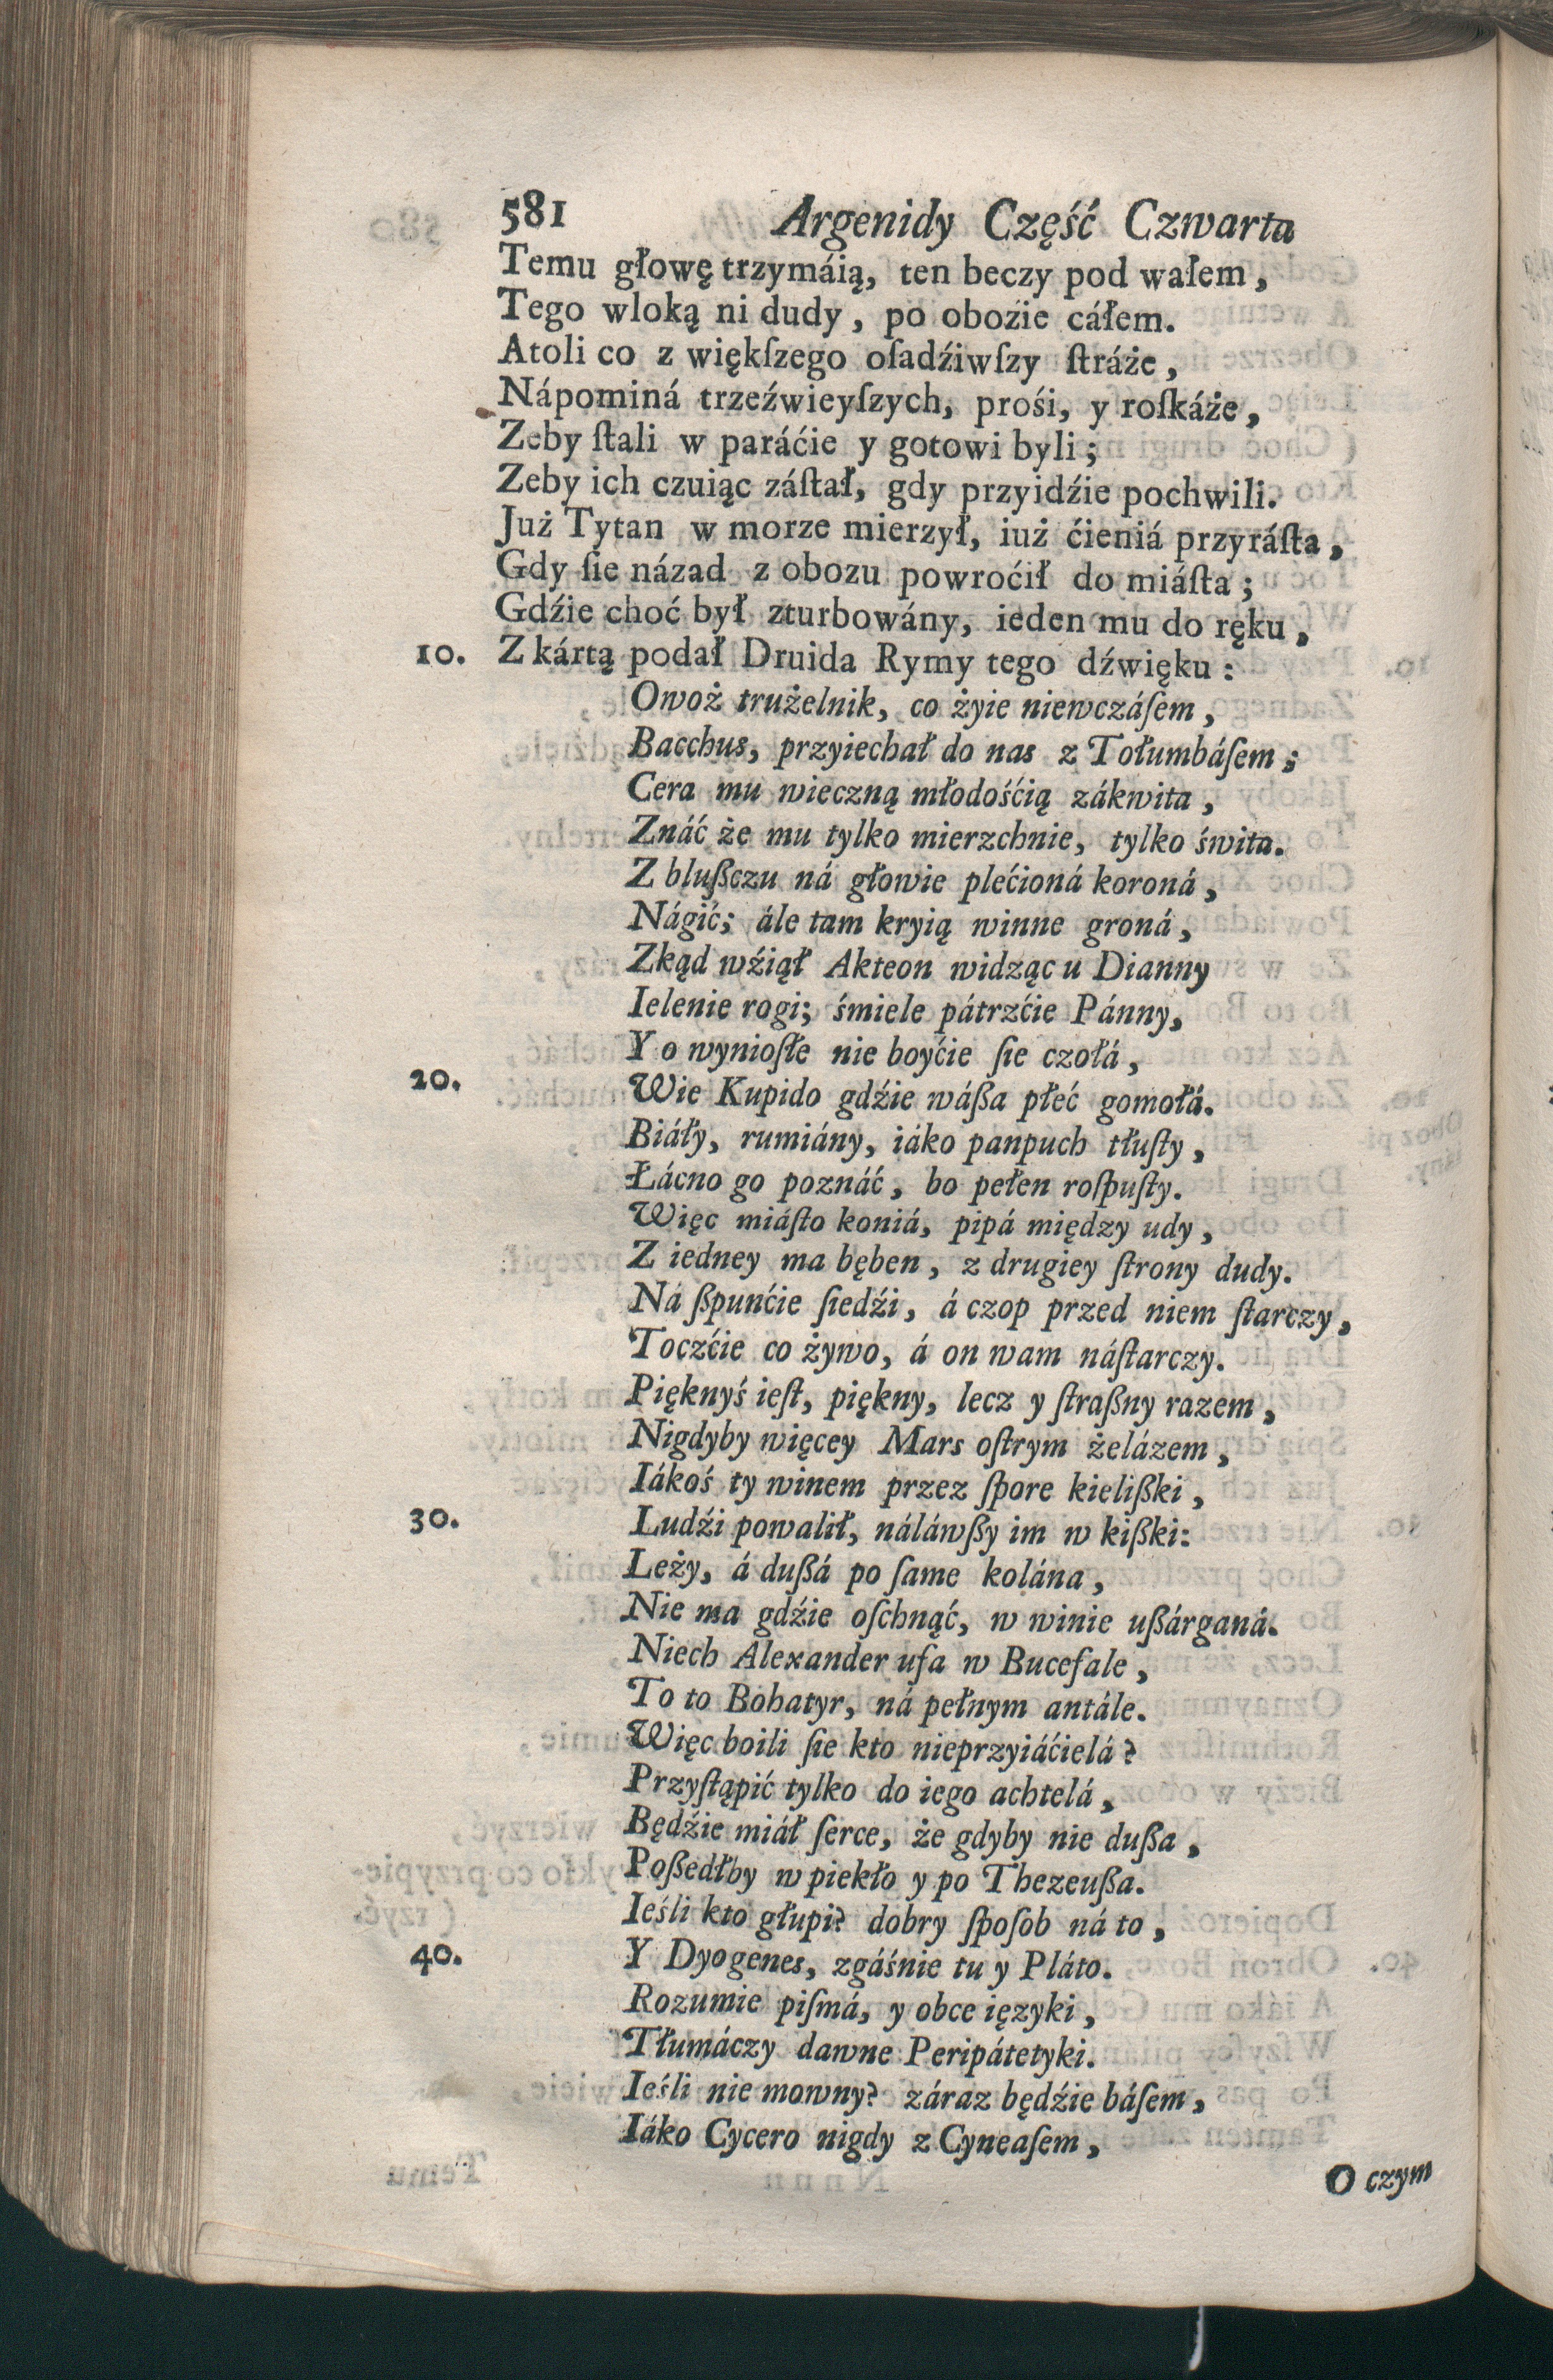 581 Argenidy Część Czwarta
Temu głowę trzymáią, ten beczy pod wałem,
Tego wloką ni dudy, po obozie cáłem.
Atoli co z więkſzego oſadźiwſzy ſtráże,
Nápominá trzeźwieyſzych, prośi, y roſkáże,
Zeby ſtali w paráćie y gotowi byli;
Zeby ich czuiąc záſtał, gdy przyidźie pochwili.
Już Tytan w morze mierzył, iuż ćieniá przyráſta,
Gdy ſie názad z obozu powroćił do miáſta;
Gdźie choć był zturbowány, ieden mu do ręku,
10. Z kártą podał Druida Rymy tego dźwięku:
Owoż trużelnik, co żyie niewczáſem,
Bacchus, przyiechał do nas z Tołumbáſem;
Cera mu wieczną młodośćią zákwita,
Znáć że mu tylko mierzchnie, tylko świta.
Z blußczu ná głowie plećioná koroná,
Nágić; ále tam kryią winne groná,
Zkąd wźiął Akteon widząc u Dianny
Ielenie rogi; śmiele pátrzćie Pánny,
Y o wynioſłe nie boyćie ſie czołá,
20. Wie Kupido gdźie wáßa płeć gomołá.
Biáły, rumiány, iáko panpuch tłuſty,
Łácno go poznáć, bo pełen roſpuſty.
Więc miáſto koniá, pipá między udy,
Z iedney ma bęben, z drugiey ſtrony dudy.
Ná ßpunćie ſiedźi, á czop przed niem ſtarczy,
Toczćie co żywo, á on wam náſtarczy.
Pięknyś ieſt, piękny, lecz y ſtraßny razem,
Nigdyby więcey Mars oſtrym żelázem,
Iákoś ty winem przez ſpore kielißki,
30. Ludźi powalił, náláwßy im w kißki:
Leży, á dußá po ſame kolána,
Nie ma gdźie oſchnąć, w winie ußárganá.
Niech Alexander ufa w Bucefale,
To to Bohatyr, ná pełnym antále.
Więc boili ſie kto nieprzyiáćielá?
Przyſtąpić tylko do iego achtelá,
Będźie miáł ſerce, że gdyby nie dußa,
Poßedłby w piekło y po Thezeußa.
Ieśli kto głupi? dobry ſpoſob ná to,
40. Y Dyogenes, zgáśnie tu y Pláto.
Rozumie piſmá, y obce ięzyki,
Tłumáczy dawne Peripátetyki.
Ieśli nie mowny? záraz będźie báſem,
Iáko Cycero nigdy z Cyneaſem,
O czym